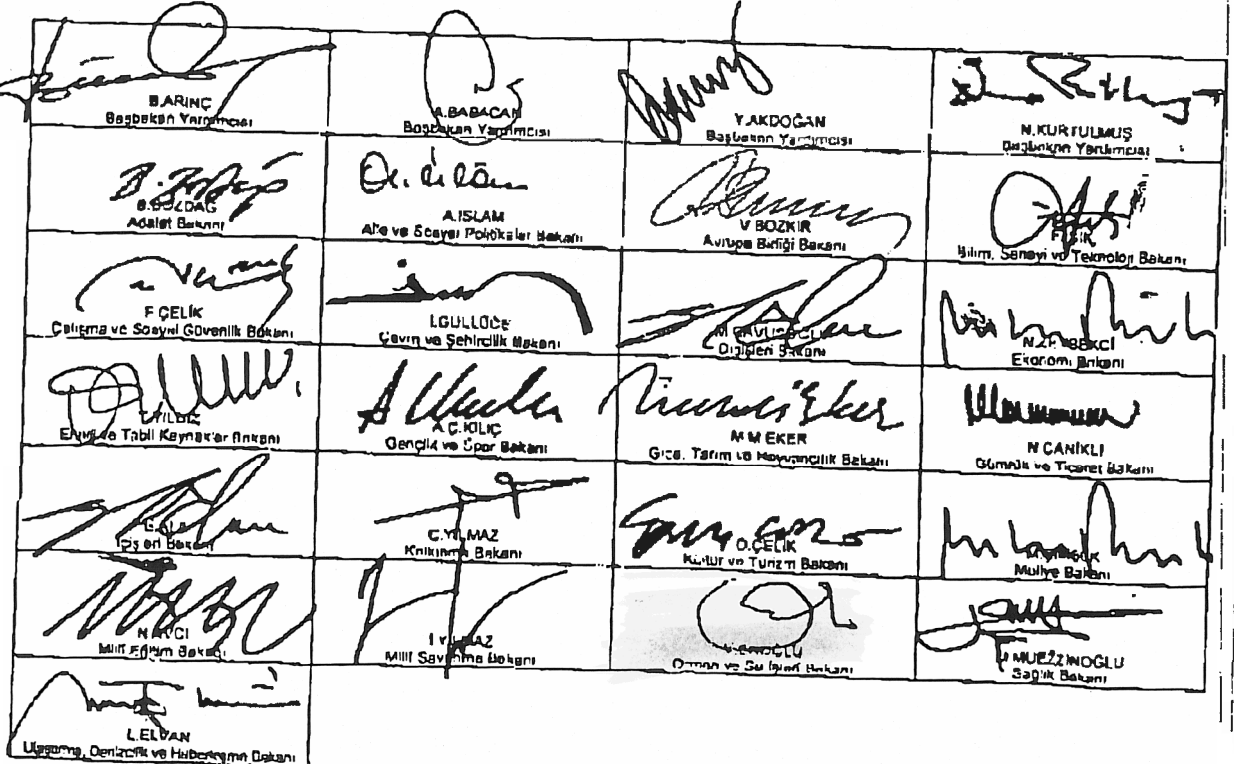 B.ARINÇ
Başbakan Yardımcısı
A.BABACAN
Başbakan Yardımcısı
Y.AKDOĞAN
Başbakan Yardımcısı
N.KURTULMUŞ
Başbakan Yardımcısı
B.BOZDAĞ
Adalet Bakanı
A.İSLAM
Aile ve Sosyal Politikalar Bakanı
V.BOZKIR
Avrupa Birliği Bakanı
F.IŞIK
Bilim, Sanayi ve Teknoloji Bakanı
F.ÇELİK
Çalışma ve Sosyal Güvenlik Bakanı
İ.GÜLLÜCE
Çevre ve Şehircilik Bakanı
M.ÇAVUŞOĞLU
Dışişleri Bakanı
N.ZEYBEKCİ
Ekonomi Bakanı
T.YILDIZ
Enerji ve Tabii Kaynaklar Bakanı
A.Ç.KILIÇ
Gençlik ve Spor Bakanı
M.M.EKER
Gıda, Tarım ve Hayvancılık Bakanı
N.CANİKLİ
Gümrük ve Ticaret Bakanı
İçişleri Bakanı
C.YILMAZ
Kalkınma Bakanı
Ö.ÇELİK
Kültür ve Turizm Bakanı
Maliye Bakanı
N.AVCI
Milli Eğitim Bakanı
İ.YILMAZ
Milli Savunma Bakanı
V.EROĞLU
Orman ve Su İşleri Bakanı
M.MÜEZZİNOĞLU
Sağlık Bakanı
L.ELVAN
Ulaştırma, Denizcilik ve Haberleşme Bakanı